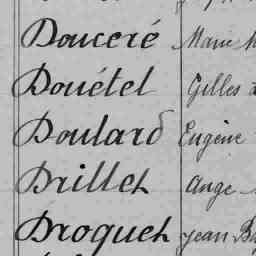 Douceré Marie
Douétel Gilles
Doulard Eugène
Drillet Ange
Droquet Jean